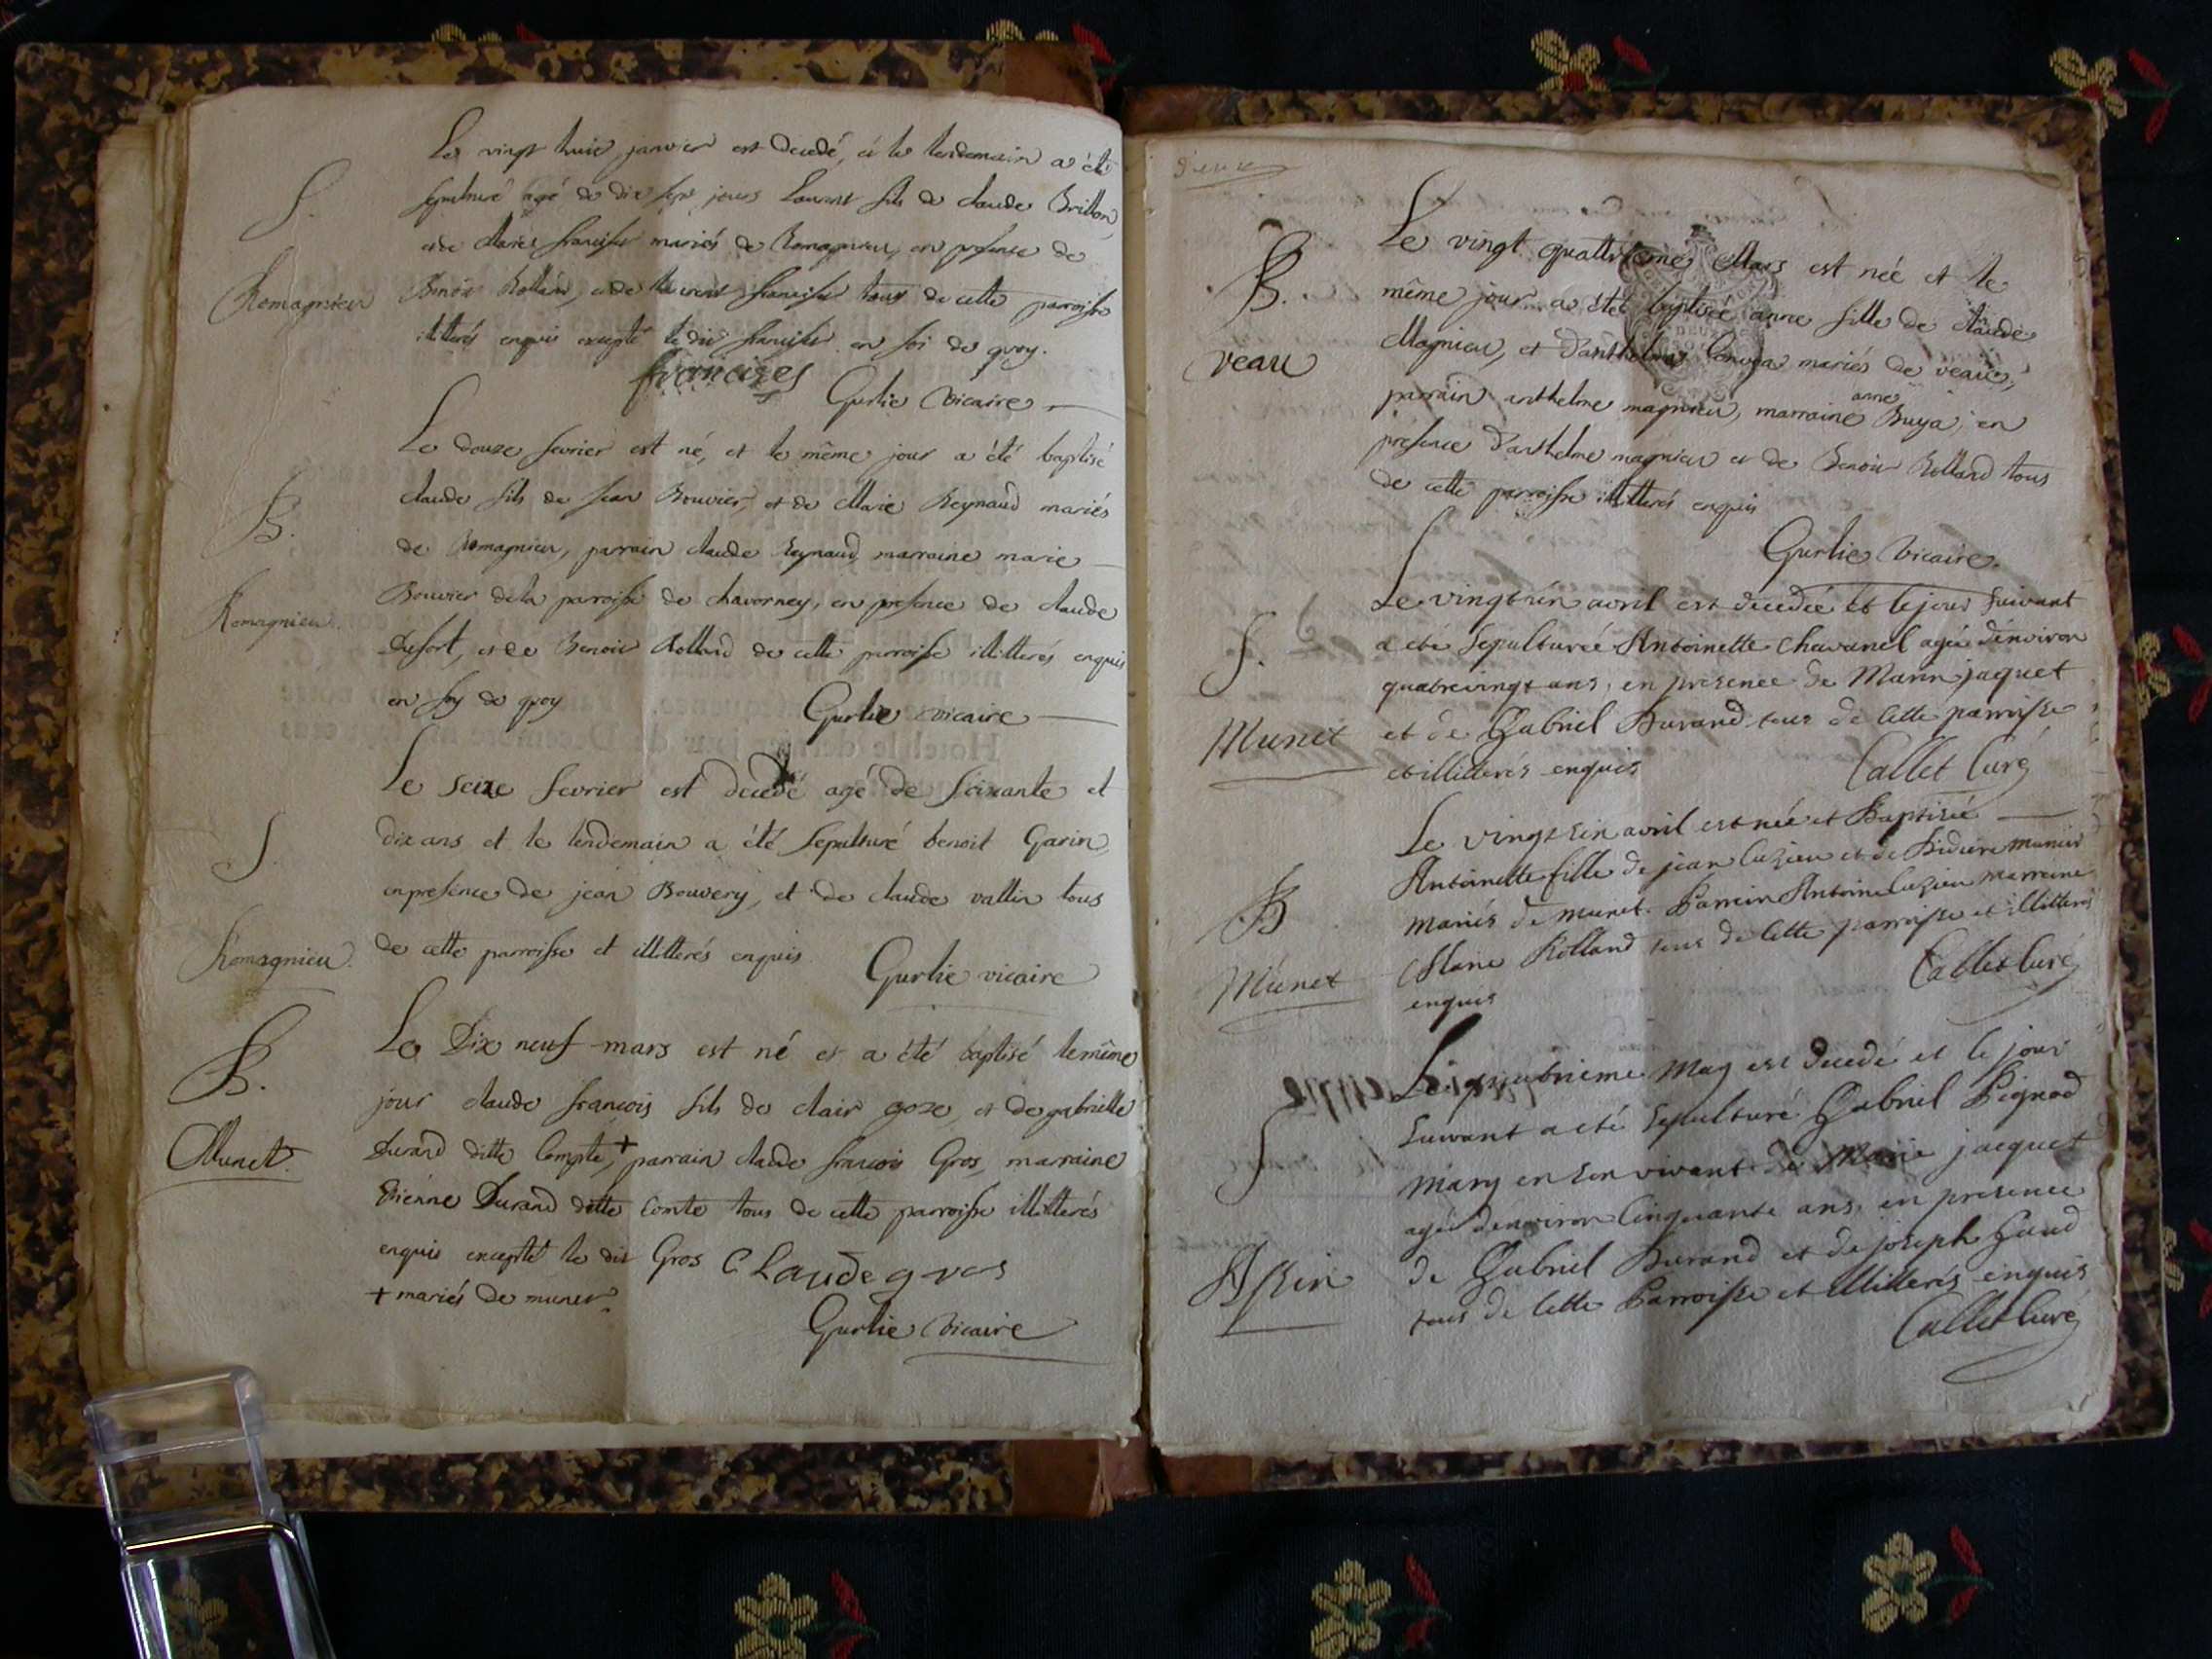 Le vingt huit janvier est decedé, et le lendemain a été
S.
sepulturé agé de dix sept jours Laurent fils de claude Brillon
et de Marie francises mariés de Romagnieu, en presence de
Romagnieu
Benoit Rolland, et de Laurent francises tous de cette parroisse
illitterés enquis excepté le dit francises en foi de quoy.
francizes
Gurlie vicaire
Le douze fevrier est né, et le même jour a été baptisé
B.
claude fils de Jean Bouvier, et de Marie Reynaud mariés
de Romagnieu, parrain claude Reynaud marraine marie
Romagnieu.
Bouvier de la parroisse de chavorney, en presence de claude
Dufort, et de Benoit Rolland de cette parroisse illitterés enquis
en foy de quoy
Gurlie vicaire
Le seize fevrier est decedé agé de soixante et
S
dix ans et le lendemain a été sepulturé benoit Garin,
en presence de jean Bouvery, et de claude vallin tous
Romagnieu.
de cette parroisse et illitterés enquis
Gurlie vicaire
B.
Le Dix neuf mars est né et a été baptisé le même
jour claude francois fils de clair goze, et de gabrielle
Munet.
Durand ditte Compte, + parrain claude francois Gros, marraine
Etiènne Durand ditte Comte tous de cette parroisse illitterés
enquis excepté le dit Gros CLaude gros
+ mariés de munet.
Gurlie vicaire
Deux
B.
Le vingt quattrieme Mars est née et le
même jour a été baptisée anne fille de claude
veau
Magnieu, et d'anthelmaz mariés de veau,
parrain anthelme magnieu, marraine anne Buya, en
presence d'anthelme magnieu et de Benoit Rolland tous
de cette parroisse illitterés enquis
Gurlie vicaire.
Le vingt un avril est decedée et le jour suivant
S.
a eté sepulturée Antoinette Chavanel agée d'environ
quatrevingt ans, en presence de Marin jaquet
Munet
et de Gabriel Durand tous de cette parroisse
et illitterés enquis
Callet Curé
Le vingt six avril est née et Baptisée
Antoinette fille de jean luzieu et de Didiere munier
B
mariés de munet. Parrein Antoine luzieu marreine
Marie Rolland tous de cette parroisse et illitterés
Munet
enquis
Callet Curé
Le quatrieme May est decedé et le jour
suivant a eté sepulturé Gabriel Pignod
S
mary en son vivant de Marie jacquet
agé d'environ Cinquante ans, en presence
Assin
de Gabriel Durand et de joseph Gaud
tous de cette Parroisse et illitterés enquis
Callet Curé